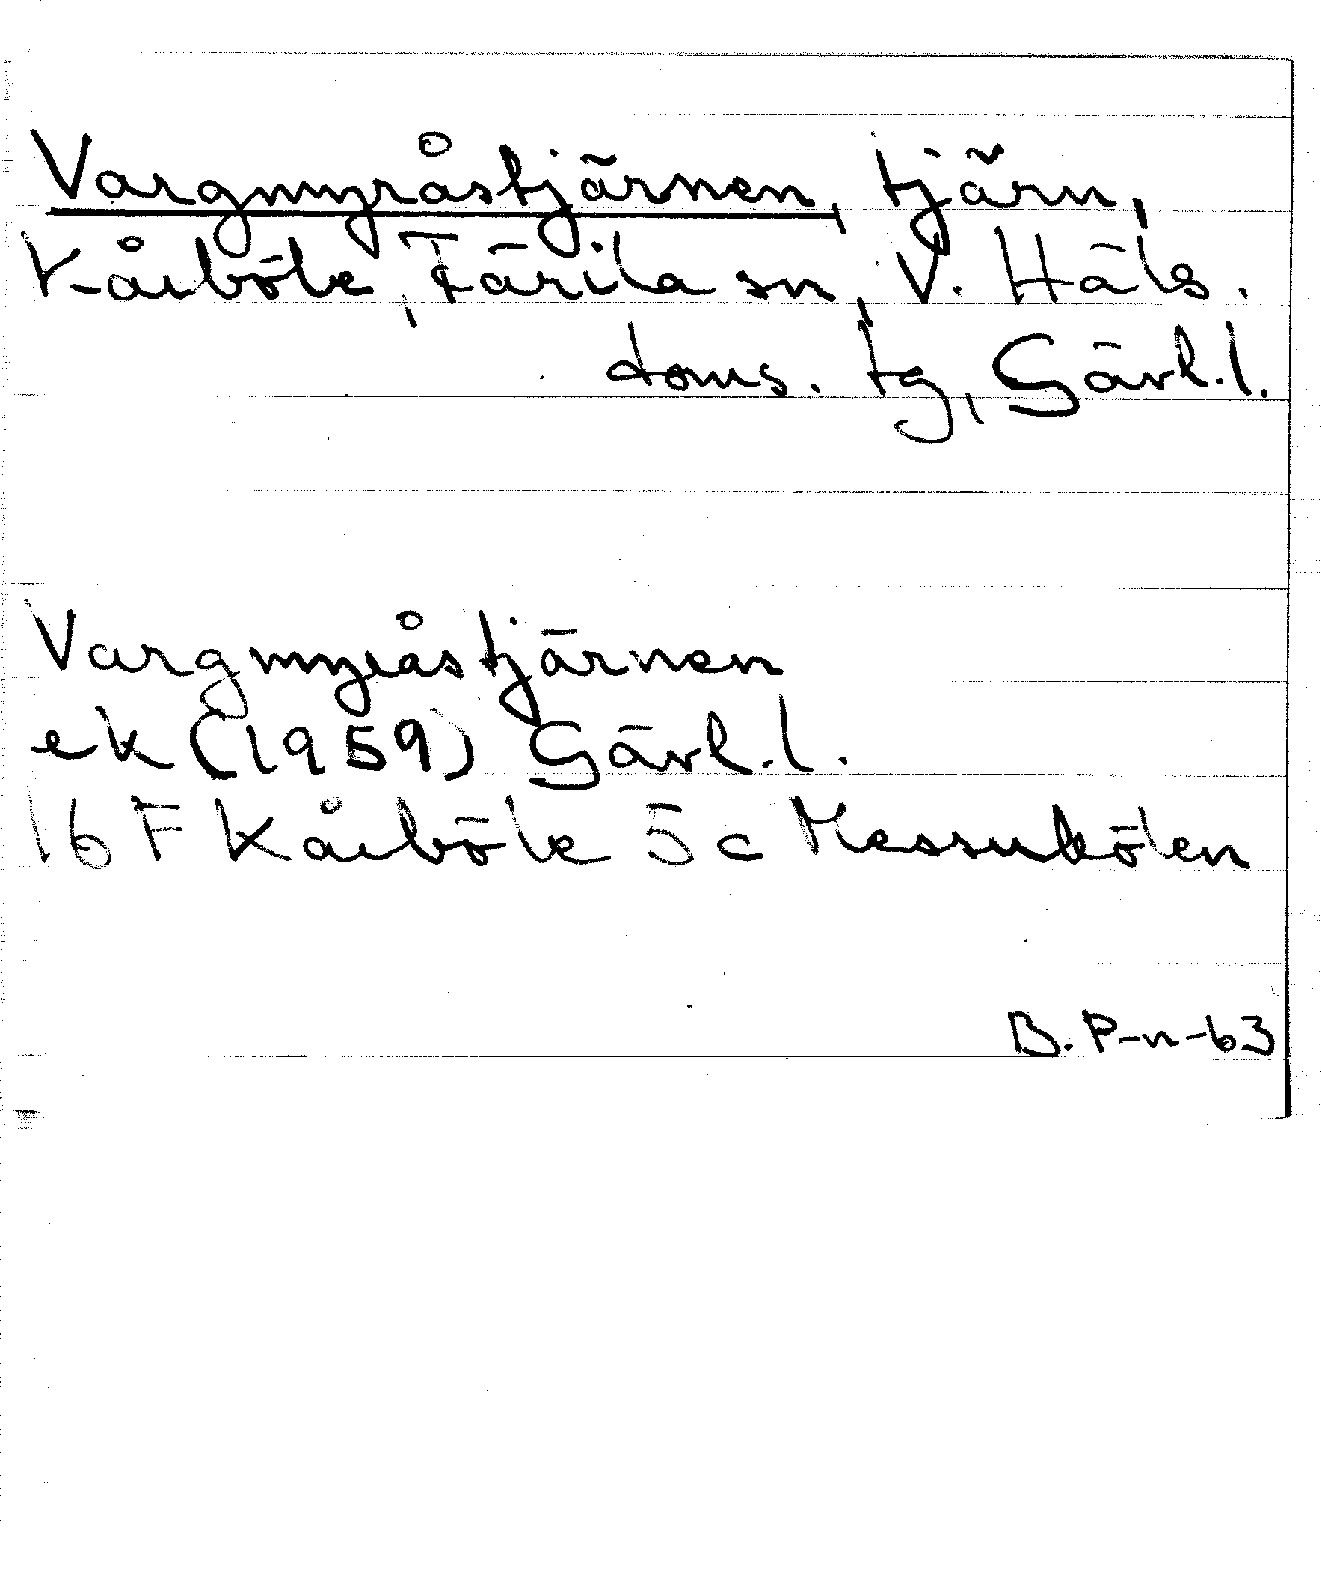 Vargmyråstjärnen, tjärn,
Kårböle, Färila sn, V. Häls.
doms. tg, Gävl.l.
Vargmyråstjärnen
ek (1959) Gävl.l.
16 F Kårböle 5 c Messukölen
B. P-n-63